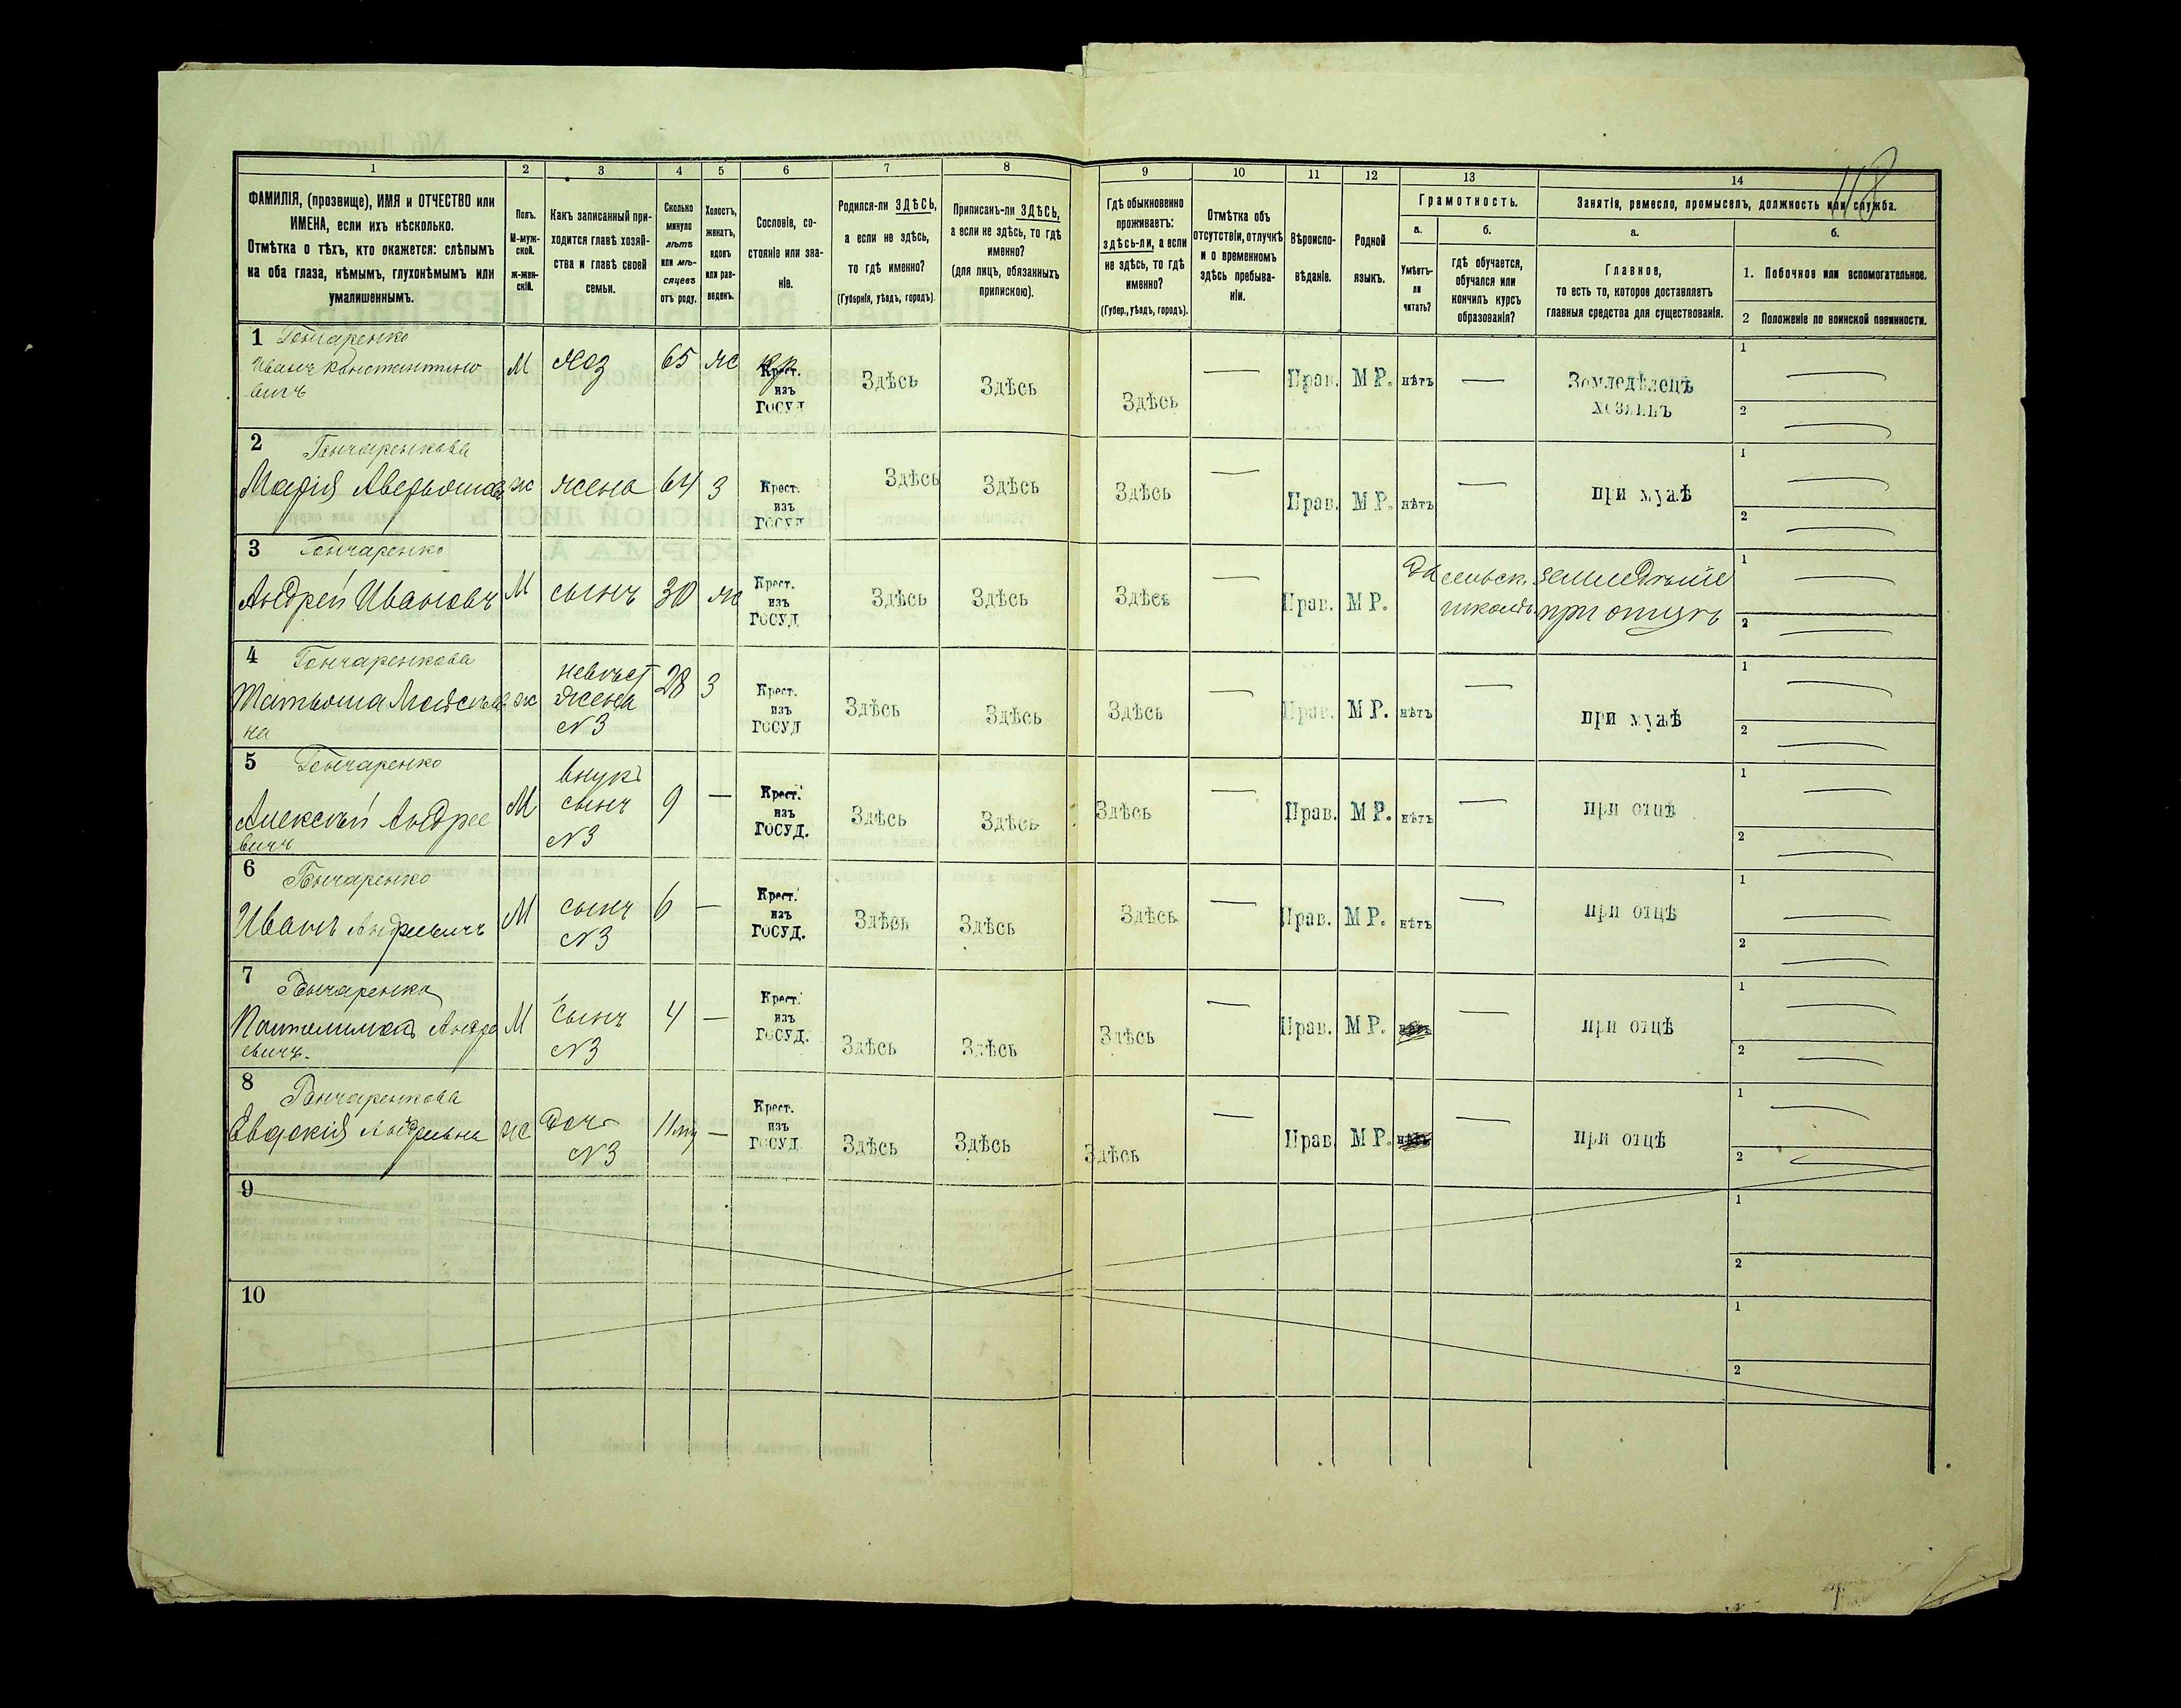 118
1 2 3 4 5 6 7 8 9 10 11 12 13 14
ФАМИЛІЯ, (прозвище), ИМЯ и ОТЧЕСТВО или
ИМЕНА, если ихъ нѣсколько.
Отмѣтка о тѣхъ, кто окажется: слѣпымъ
на оба глаза, нѣмымъ, глухонѣмымъ или
умалишеннымъ.
Полъ.
М-муж-
ской.
ж-жен-
скій.
Какъ записанный при-
ходится главѣ хозяй-
ства и главѣ своей
семьи.
Сколько
минуло
лѣтъ
или мѣ-
сяцевъ
отъ роду.
Холостъ,
женатъ,
вдовъ
или раз-
веденъ.
Сословіе, со-
стояніе или зва-
ніе.
Родился-ли ЗДѢСЬ,
а если не здѣсь,
то гдѣ именно?
(Губернія, уѣздъ, городъ).
Приписанъ-ли ЗДѢСЬ,
а если не здѣсь, то гдѣ
именно?
(для лицъ, обязанныхъ
припискою).
Гдѣ обыкновенно
проживаетъ:
здѣсь-ли, а если
не здѣсь, то гдѣ
именно?
(Губер., уѣздъ, городъ).
Отмѣтка объ
отсутствіи, отлучкѣ
и о временномъ
здѣсь пребыва-
ніи.
Вѣроиспо-
вѣданіе.
Родной
языкъ.
Грамотность.
а.
Умѣетъ-
ли
читать?
б.
гдѣ обучается,
обучался или
кончилъ курсъ
образованія?
Занятія, ремесло, промыселъ, должность или служба.
а.
Главное,
то есть то, которое доставляетъ
главныя средства для существованія.
б.
1. Побочное или вспомогательное.
2 Положеніе по воинской повинности.
1 Гончаренко
Иванъ Константино
вичъ
М
хоз
65
ж
кр
Крест.
изъ
ГОСУД
Здѣсь
Здѣсь
Здѣсь
—
Прав.
М Р.
нѣтъ
—
Земледѣлецъ
хозяинъ
1 —
2 —
2 Гончаренкова
Марія
ж
жена
64
з
Крест.
изъ
ГОСУД
Здѣсь
Здѣсь
Здѣсь
—
Прав.
М Р.
нѣтъ
—
при мужѣ
1 —
2 —
3 Гончаренко
Андрей Ивановъ
М
сынъ
30
ж
Крест.
изъ
ГОСУД
Здѣсь
Здѣсь
Здѣсь
—
Прав.
М Р.
да
сельск.
школѣ
земледѣліе
при отцѣ
1 —
2 —
4 Гончаренкова
Татьяна
на
ж
невѣст
жена
N3
28
з
Крест.
изъ
ГОСУД
Здѣсь
Здѣсь
Здѣсь
—
Прав.
М Р.
нѣтъ
—
при мужѣ
1 —
2 —
5 Гончаренко
Алексѣй Андрее
вичъ
М
внукъ
сынъ
N3
9
—
Крест.
изъ
ГОСУД.
Здѣсь
Здѣсь
Здѣсь
—
Прав.
М Р.
нѣтъ
—
при отцѣ
1 —
2 —
6 Гончаренко
Иванъ Андреевичъ
М
сынъ
N3
6
—
Крест.
изъ
ГОСУД.
Здѣсь
Здѣсь
Здѣсь
—
Прав.
М Р.
нѣтъ
—
при отцѣ
1 —
2 —
7 Гончаренко
Андре
евичъ.
М
сынъ
N3
4
—
Крест.
изъ
ГОСУД.
Здѣсь
Здѣсь
Здѣсь
—
Прав.
М Р.
—
при отцѣ
1 —
2 —
8 Гончаренкова
Евдокія Андреевна
ж
доч
N3
—
Крест.
изъ
ГОСУД.
Здѣсь
Здѣсь
Здѣсь
—
Прав
М Р.
—
при отцѣ
1 —
2 —
9
1
2
10
1
2